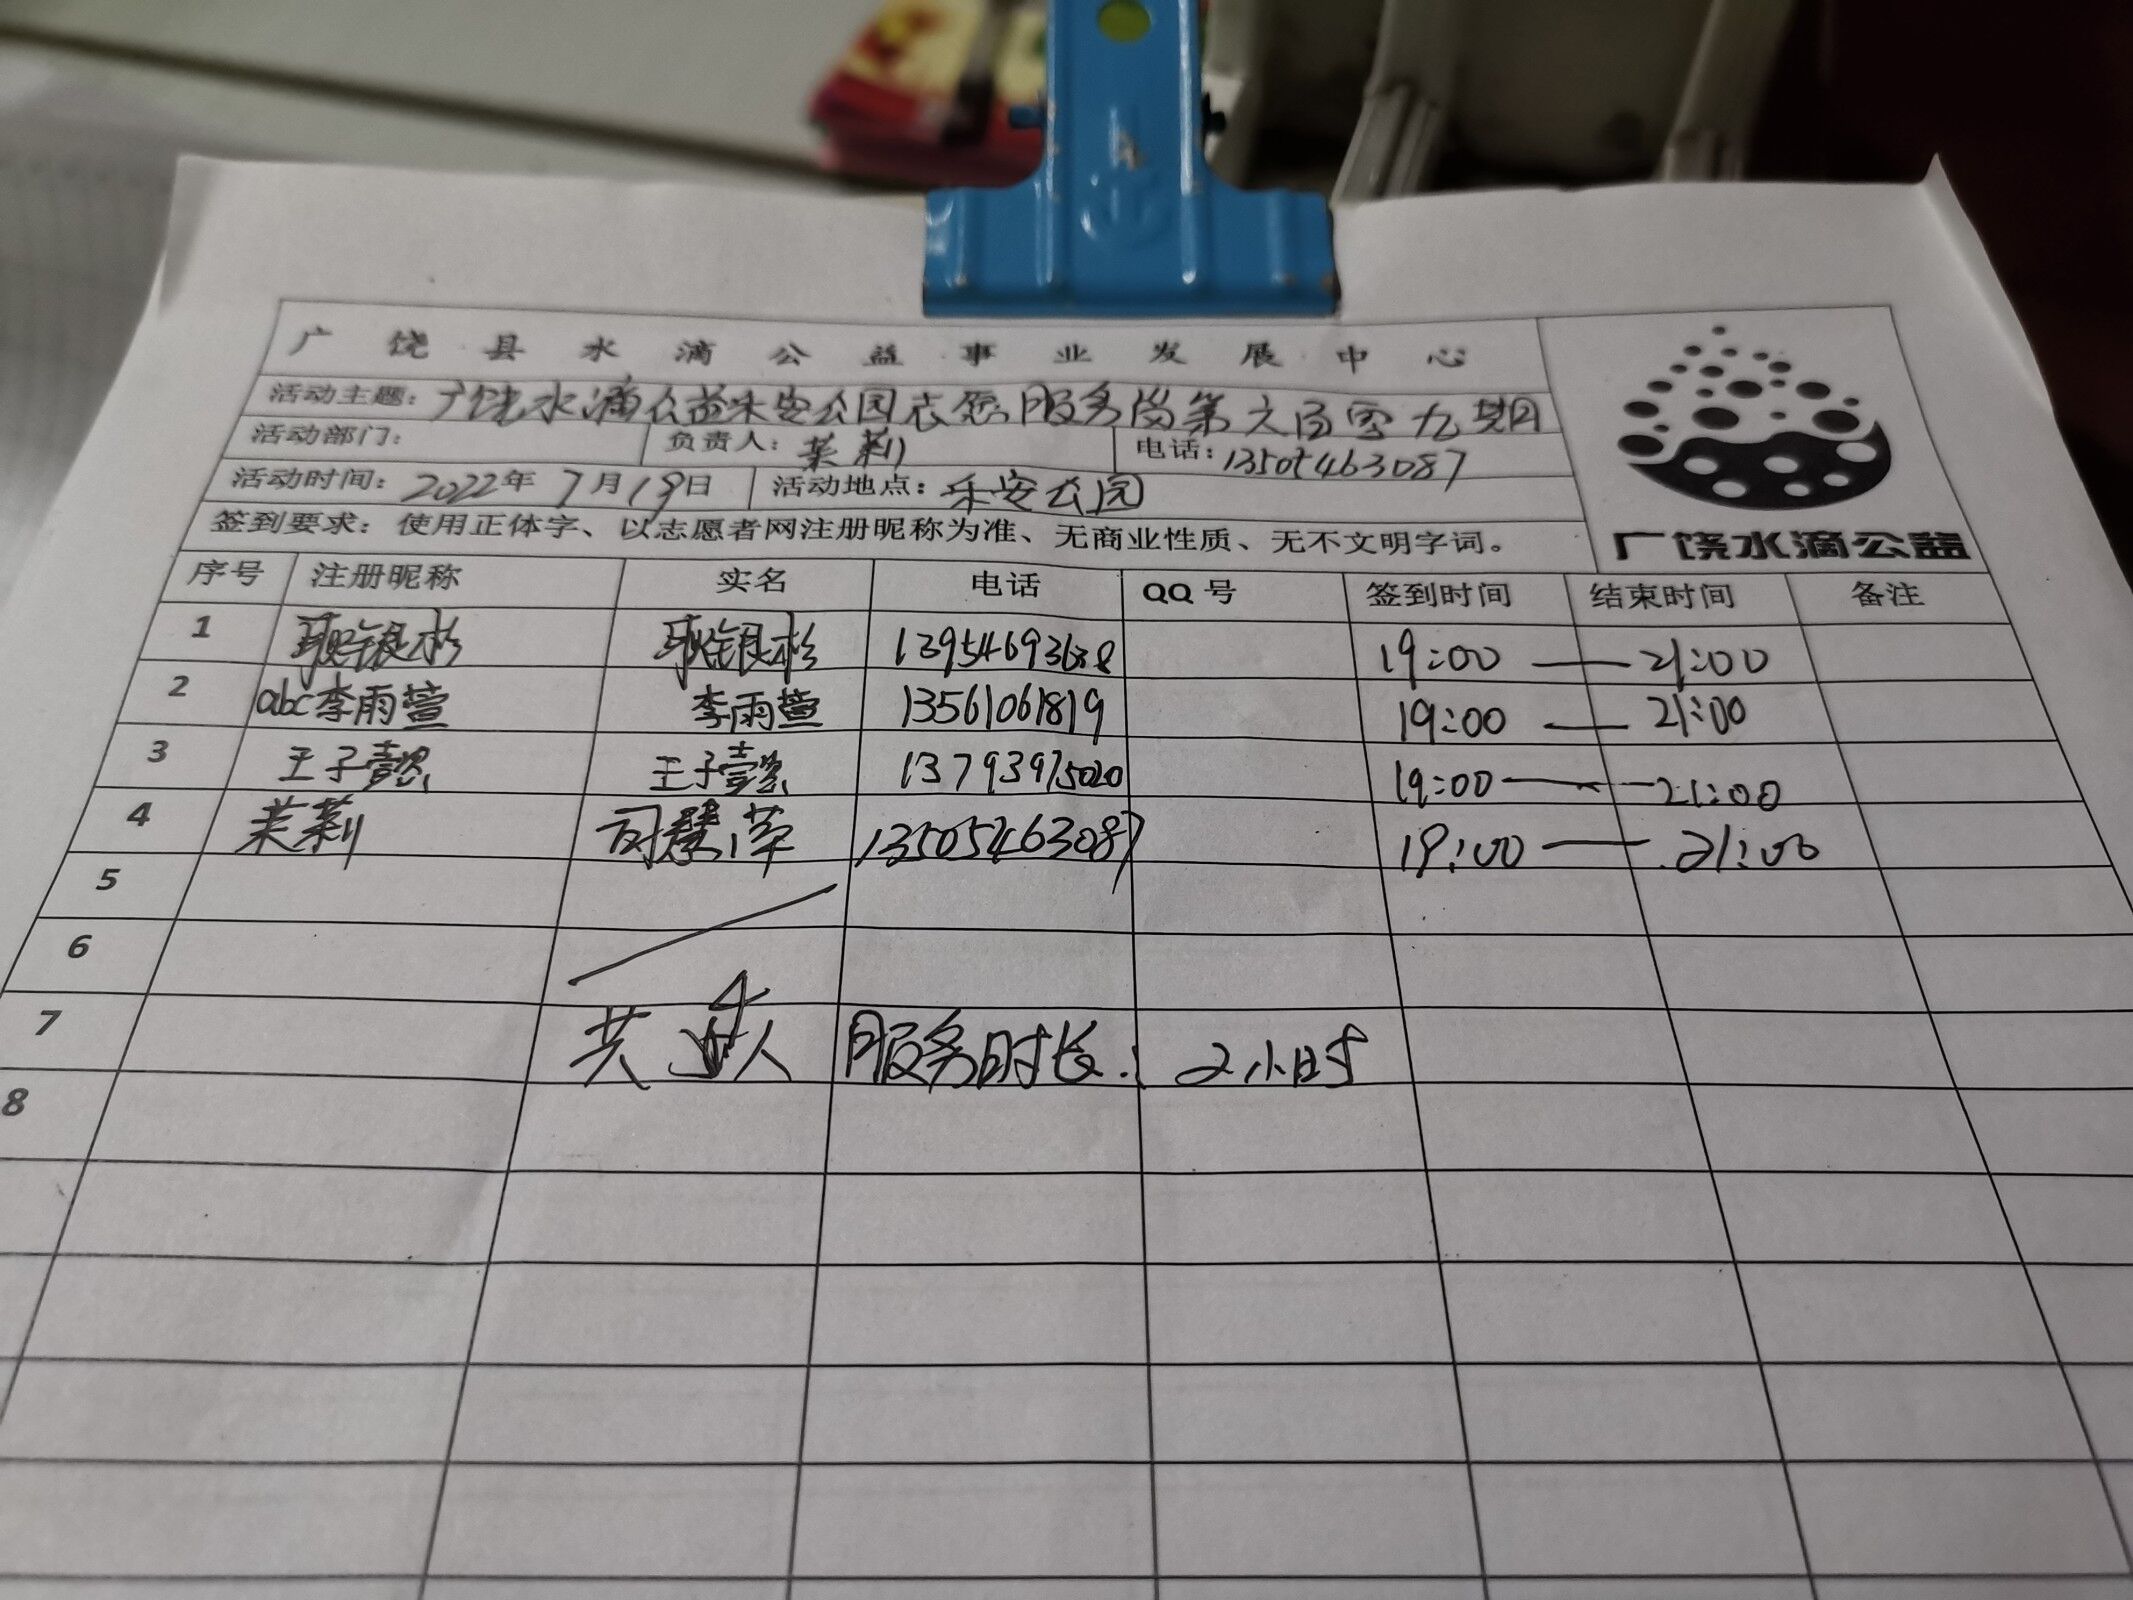 广饶县水滴公益事业发展中心
活动主题：广饶水滴公益乐安公园志愿服务岗第六百零九期
活动部门： 负责人：茉莉 电话：13505463087
活动时间：2022年7月19日 活动地点：乐安公园
签到要求：使用正体字、以志愿者网注册昵称为准、无商业性质、无不文明字词。
广饶水滴公益
序号 注册昵称 实名 电话 QQ号 签到时间 结束时间 备注
1 耿银杉 耿银杉 19:00 — 21:00
2 abc李雨萱 李雨萱 13561061819 19:00 — 21:00
3 王子懿 王子懿 13793975020 19:00 — 21:00
4 茉莉 司慧萍 13505463087 19:00 — 21:00
5
6
7 共4人 服务时长：2小时
8